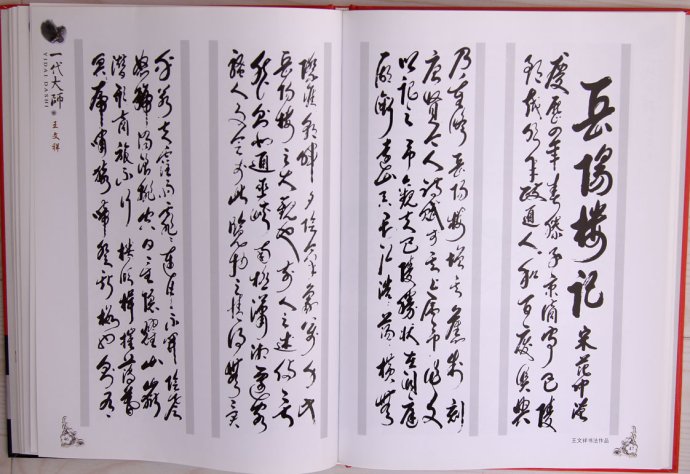 岳陽楼记 宋 范中淹
慶历四年春滕子京谪守巴陵
郡越明年政通人和百废具興
乃重修岳陽楼增其舊制刻
唐贤今人詩赋于其上属予作文
以记之予觀夫巴陵勝状在洞庭
一湖衔遠山吞長江浩浩荡荡横無
際涯朝晖夕陰氣象万千此则
岳陽楼之大觀也前人之述備矣
然则北通巫峡南极潇湘遷客
骚人多会于此览物之情得無異
乎若夫霪雨霏霏連月不開陰風
怒號濁浪排空日星隐耀山岳
潜形商旅不行樯倾楫摧薄暮
冥冥虎啸猿啼登斯楼也则有
王文祥书法作品
一代大師
YIDAI DASHI
王文祥